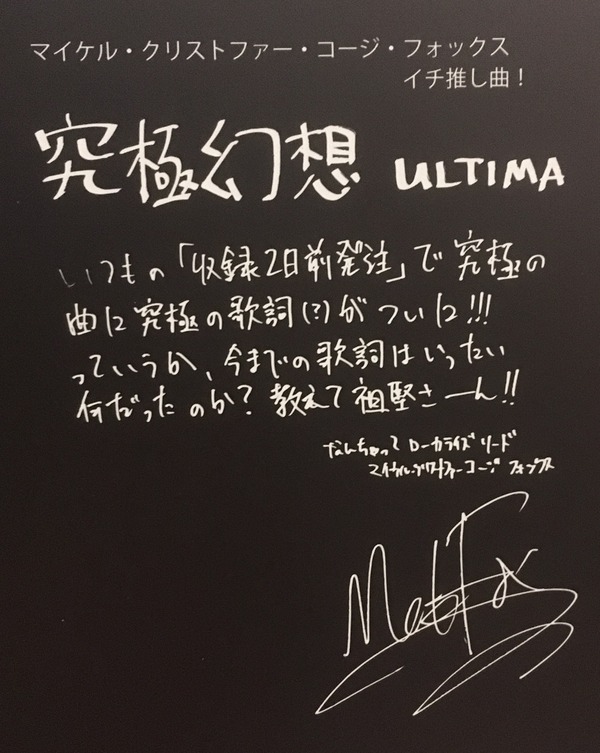 マイケル・クリストファー・コージ・フォックス
イチ推し曲！
究極幻想 ULTIMA
いつもの「収録2日前発注」で究極の
曲に究極の歌詞(?)がついに!!!
っていうか、今までの歌詞はいったい
何だったのか? 教えて祖堅さーん!!
なんちゃって ローカライズ リード
マイケル・クリストファー・コージ フォックス